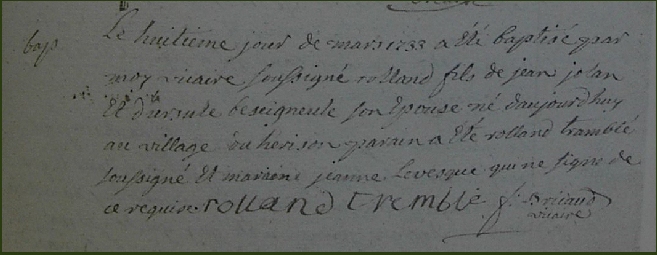 bap
Le huitieme jour de mars 1733 a été baptisé par
moy vicaire soussigné rolland fils de jean jolan
Et d'ursule beseigneule son Epouse né d'aujourdhuy
au village du herison parain a été rolland tramblé
soussigné Et maraine jeanne Levesque qui ne signe de
ce requise rolland tremble
vicaire